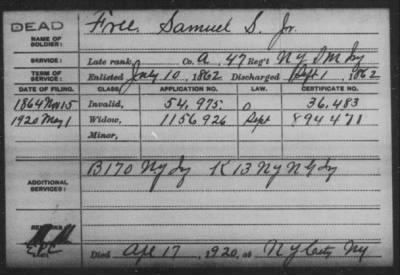 DEAD
NAME OF SOLDIER: Free Samuel S. Jr.
SERVICE: Late rank, Co. A, 47 Reg't N Y S M Inf
TERM OF SERVICE: Enlisted July 10, 1862 Discharged Sept 1, 1862
DATE OF FILING. CLASS. APPLICATION NO. LAW. CERTIFICATE NO.
1864 Nov 15 Invalid, 54,975. 36,483
1920 May 1 Widow, 1156926 Sept 894471
Minor,
ADDITIONAL SERVICES: B 170 NY Inf K 13 NY N G Inf
Died Apr 17, 1920, at N Y City NY